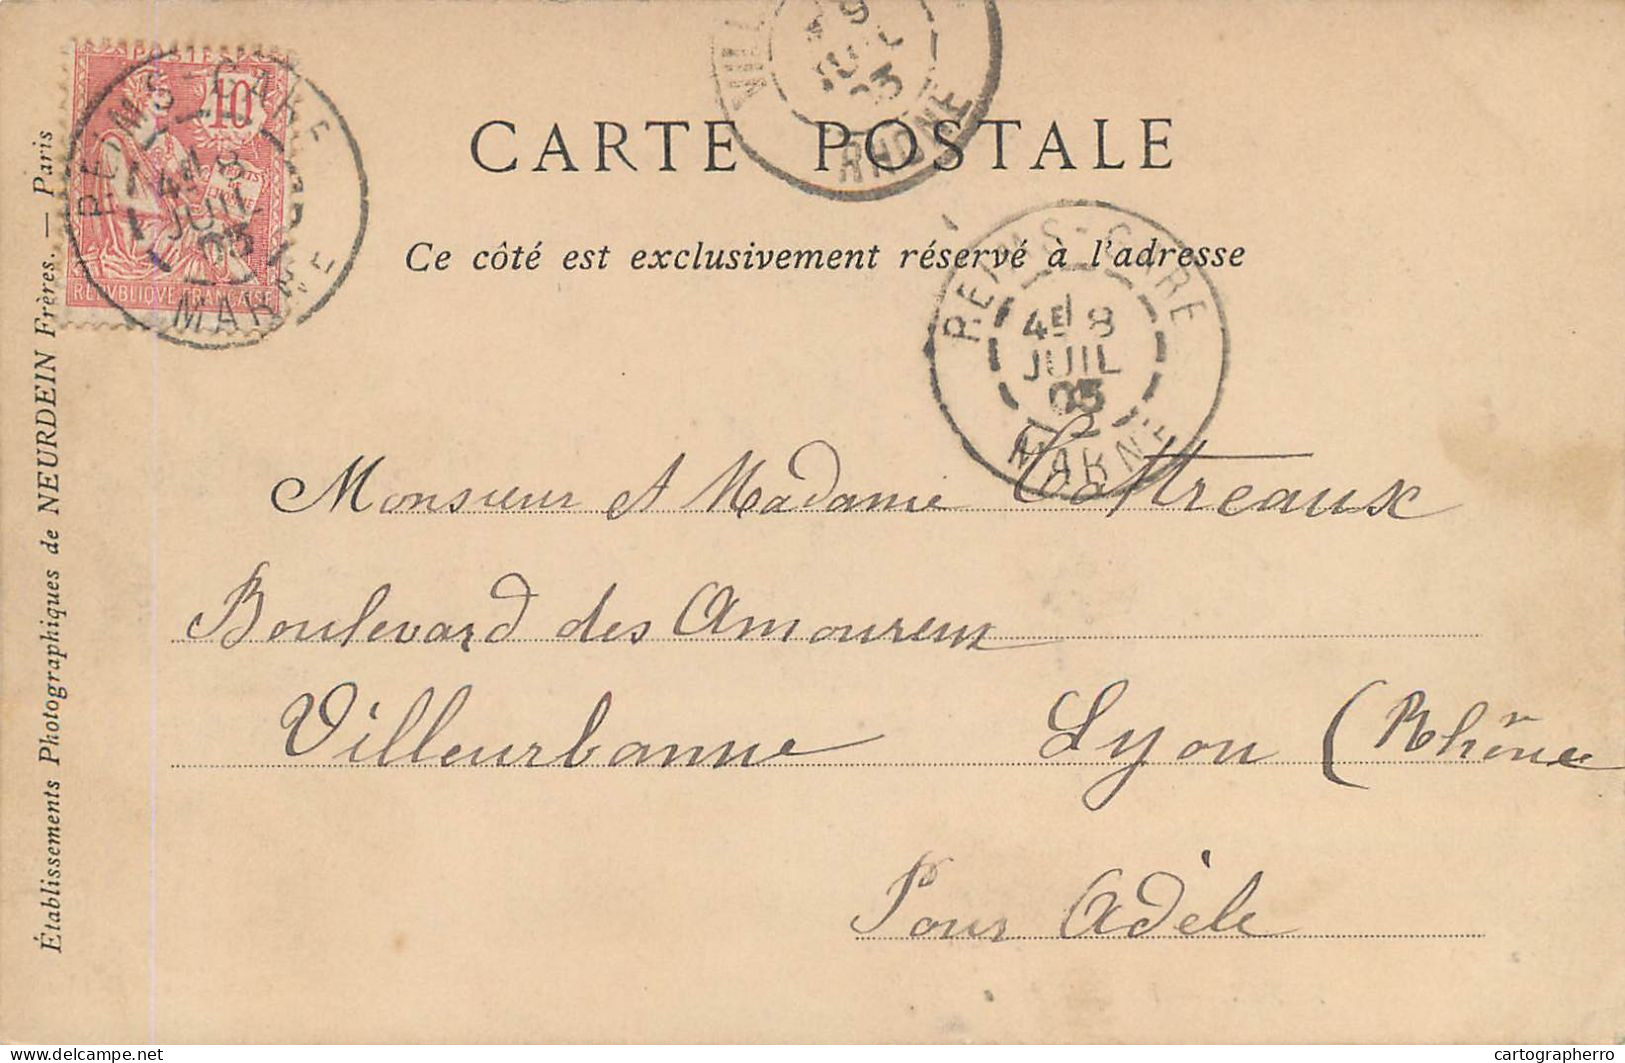 POSTES
10
REPVBLIQVE FRANÇAISE
REIMS-GARE
4E 8
JUIL
03
MARNE
VILL
9
JUIL
03
RHONE
CARTE POSTALE
Ce côté est exclusivement réservé à l'adresse
REIMS-GARE
4E 8
JUIL
03
MARNE
Monsieur et Madame Cattreaux
Boulevard des Amoureux
Villeurbanne Lyon (Rhône
Pour Adèle
Établissements Photographiques de NEURDEIN Frères. — Paris
delcampe.net
cartographerro